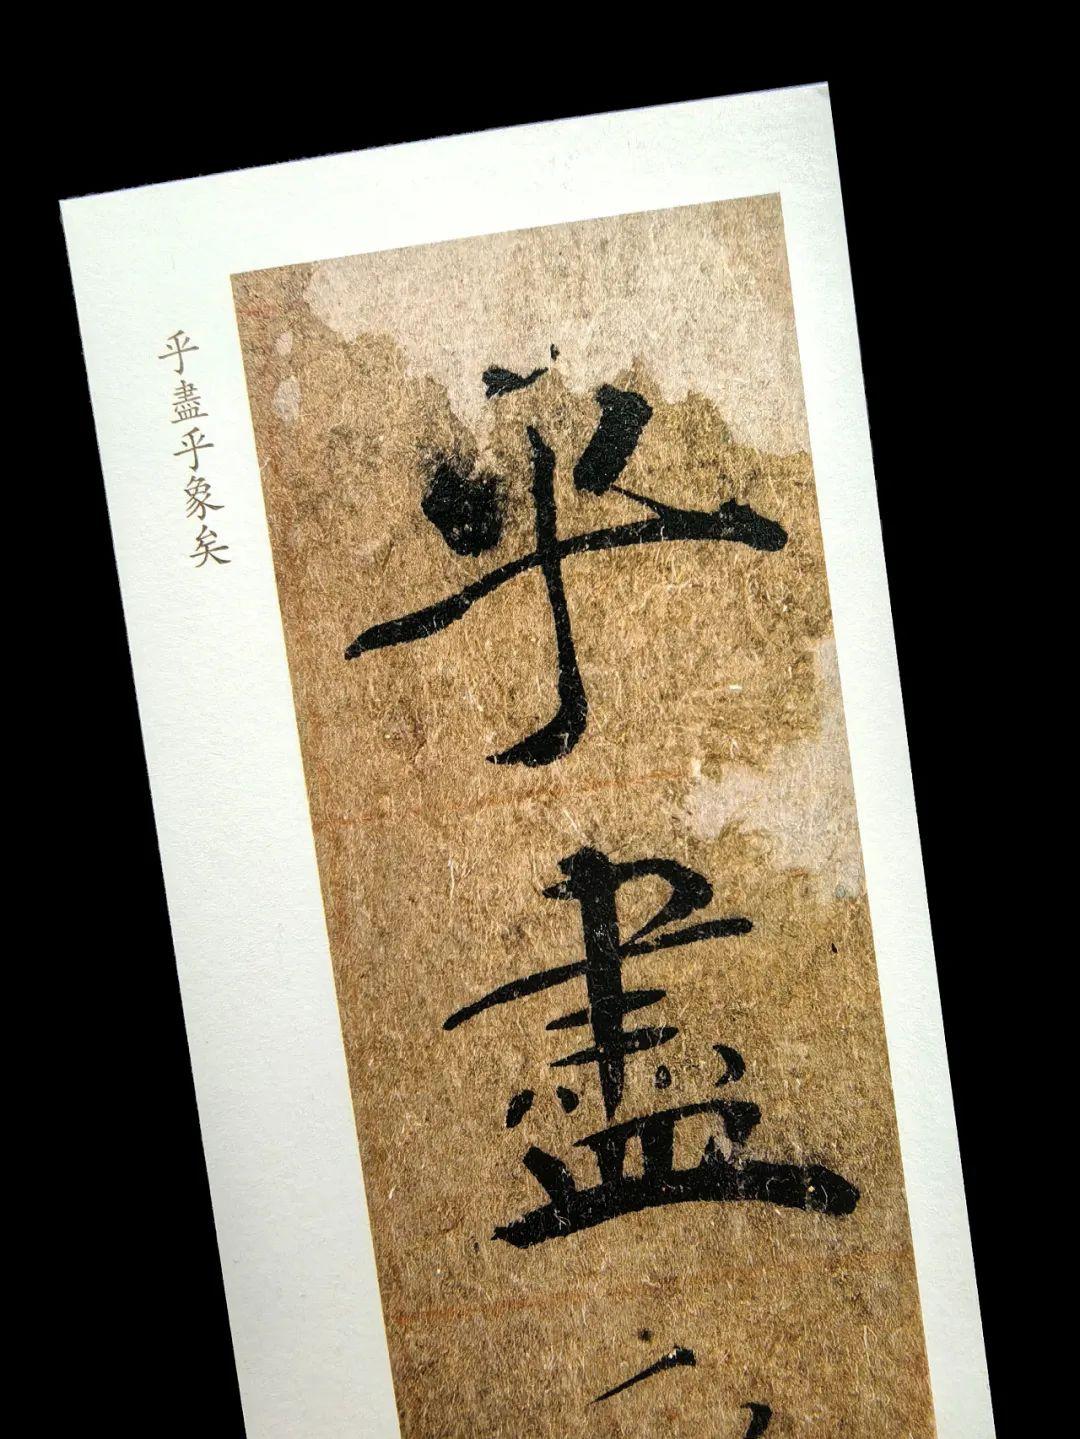 乎盡
乎盡乎象矣